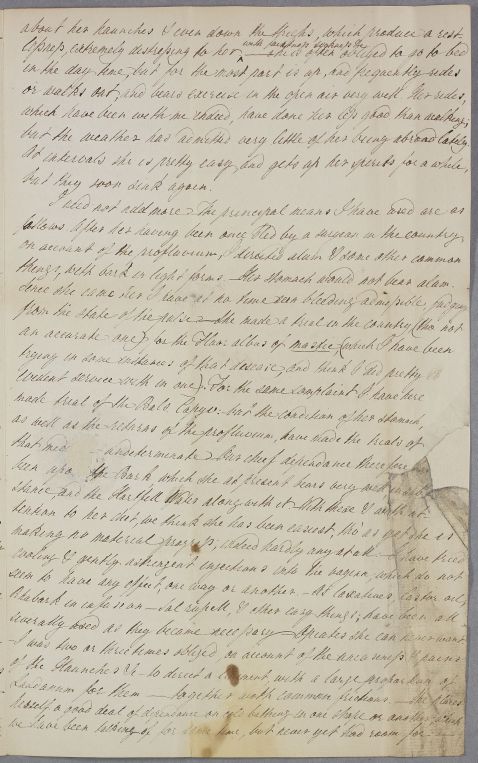 about her haunches & even down the thighs, which produce a rest
lessness, extremely distressing to her, she is often obliged to go to bed
in the day time, but for the most part is up, and frequently rides
or walks out, and bears exercise in the open air very well. Her rides,
which have been with me indeed, have done her less good than walking;
but the weather has admitted very little of her being abroad lately.
At intervals she is pretty easy, and gets up her spirits for a while,
but they soon sink again.
I need not add more. The principal means I have used are as
follows. After her having been once bled by a surgeon in the country
on account of the profluvium, I directed alum & some other common
things, with bark in light forms. Her stomach would not bear alum.
Since she came here I have at no time bleeding admissible, judging
from the state of the pulse. She made a trial in the country (tho' not
an accurate one) for the Fluor albus of mastic, (which I have been
trying in some instances of that disease, and think I did pretty
evident service with in one). For the same complaint I have here
made trial of the Bals. but the condition of her stomach,
as well as the returns of the profluvium, have made the trials of
that med undeterminate. Our chief dependance therefore
been upon the Bark which she at present bears very well in sub-
stance, and the Water along with it. With these & with at-
tention to her diet, we think she has been easiest, tho' as yet she is
making no material progress, indeed hardly any at all. I have tried
cooling & gently astringent injections into the vagina, which do not
seem to have any effect, one way or another. As laxatives, castor oil,
Rhubarb in infusion, & other easy things, have been all
severally used as they became necessary. Opiates she can never want
I was two or three times obliged, on account of the uneasiness & pains
of the Haunches &c to direct a liniment, with a large proportion of
Laudanum for them together with common frictions. She places
herself a good deal of dependance on cold bathing in one shape or another, which
we have been talking of for some time, but never yet had room for.